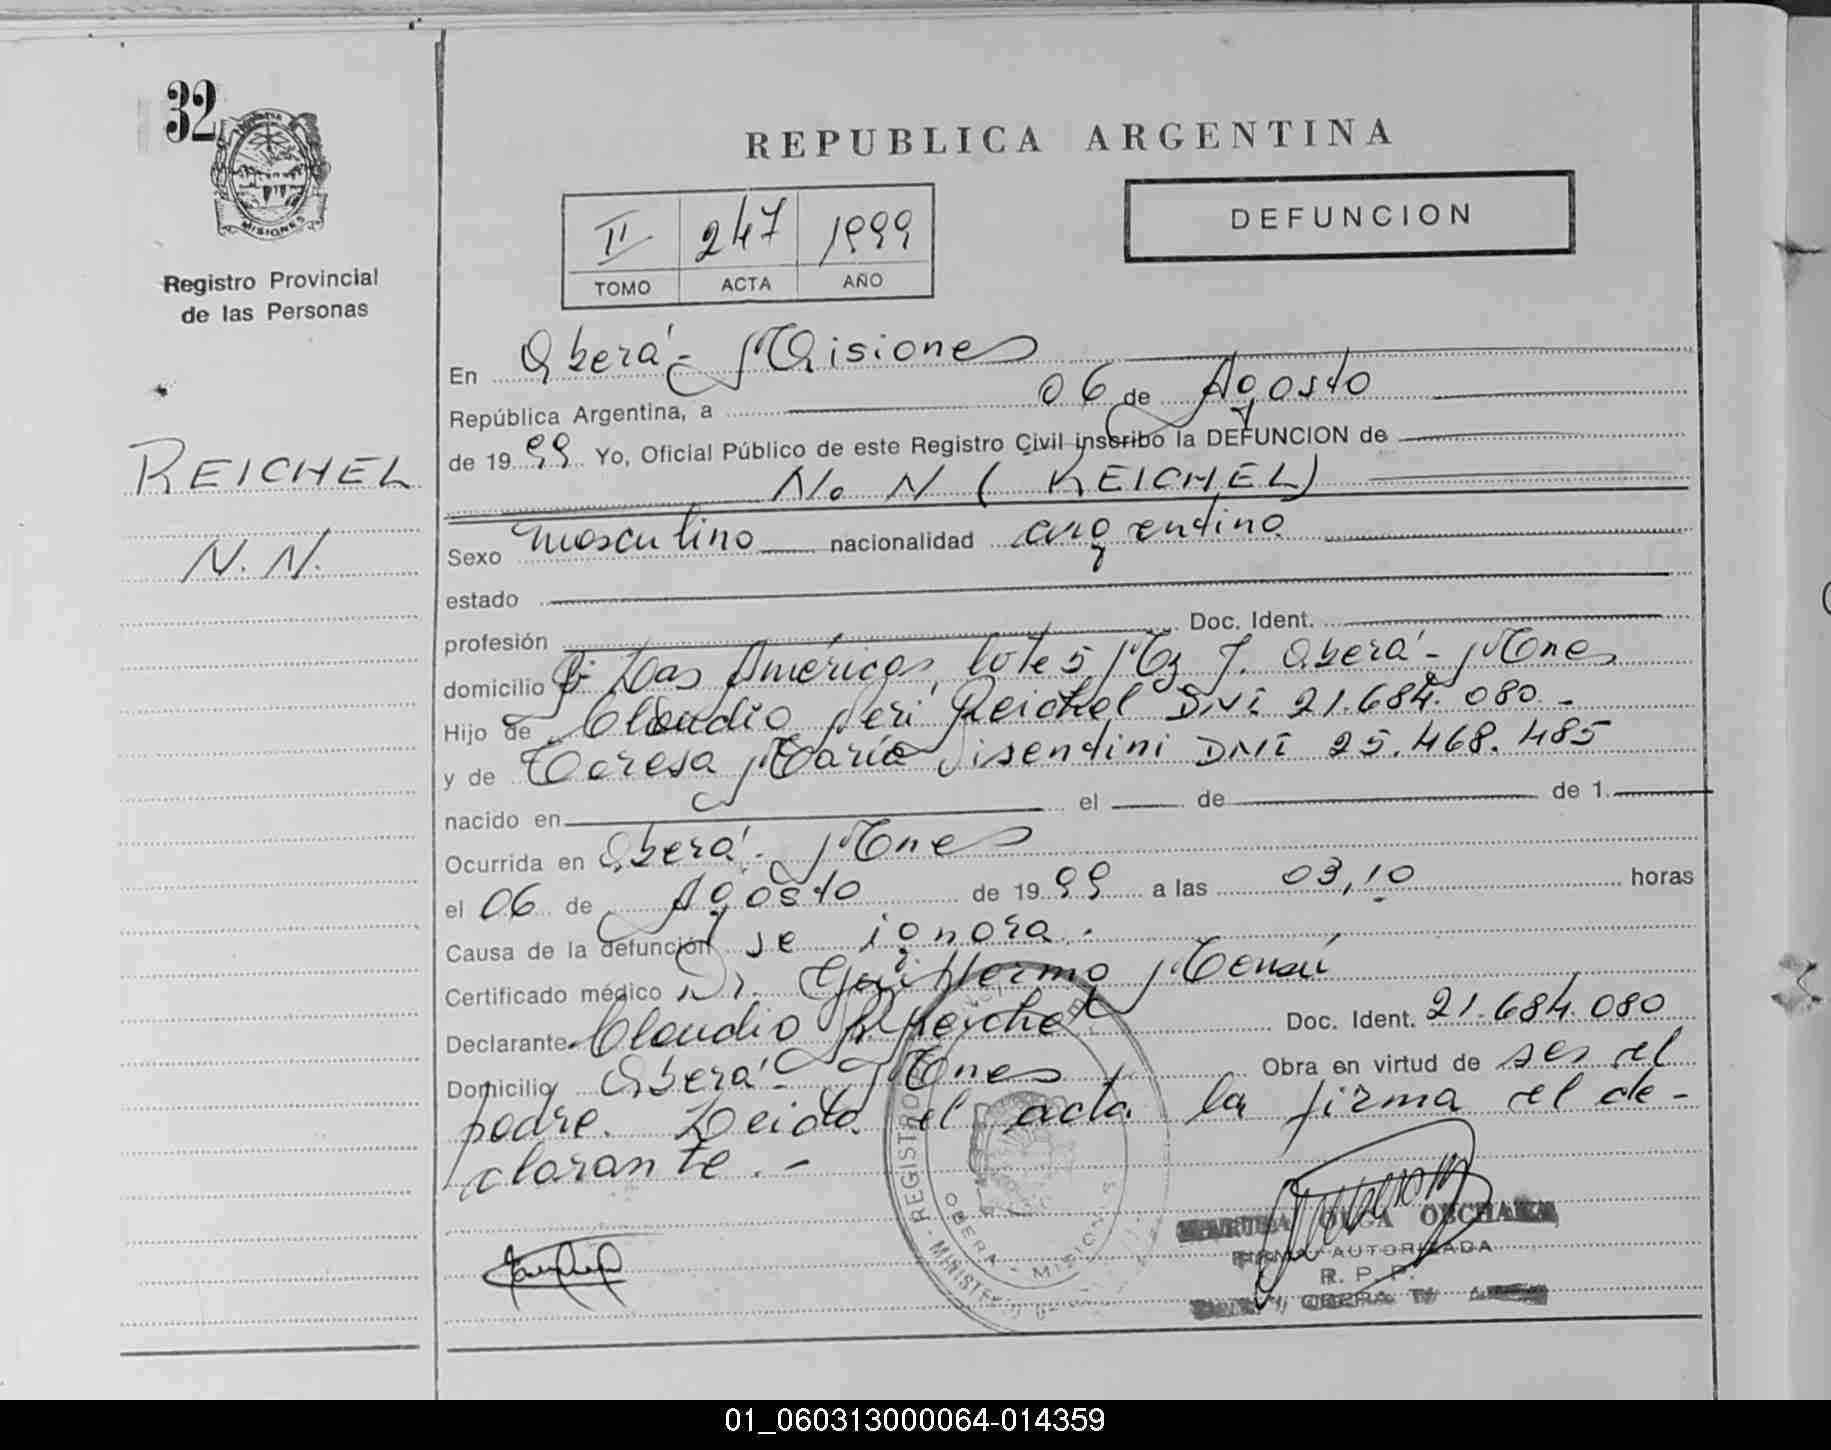 32
MISIONES
Registro Provincial
de las Personas
REICHEL
N. N.
REPUBLICA ARGENTINA
DEFUNCION
II 247 1999
TOMO ACTA AÑO
En Oberá - Misiones
República Argentina, a 06 de Agosto
de 1999 Yo, Oficial Público de este Registro Civil inscribo la DEFUNCION de
N. N (REICHEL)
Sexo masculino nacionalidad argentino
estado
profesión Doc. Ident.
domicilio Bº Las Américas, lote 5 Mz J. Oberá - Mnes
Hijo de Claudio Reichel DNI 21.684.080 -
y de Teresa María Disendini DNI 25.468.485
nacido en el de de 1
Ocurrida en Oberá - Mnes
el 06 de Agosto de 1999 a las 03,10 horas
Causa de la defunción se ignora.
Certificado médico Dr. Guillermo
Declarante Claudio Reichel Doc. Ident. 21.684.080
Domicilio Oberá - Mnes Obra en virtud de ser el
padre. Leida el acta la firma el de-
clarante. -
REGISTRO
OBERA - MISIONES
OLGA
FIRMA AUTORIZADA
R. P. P.
OBERA
01_060313000064-014359